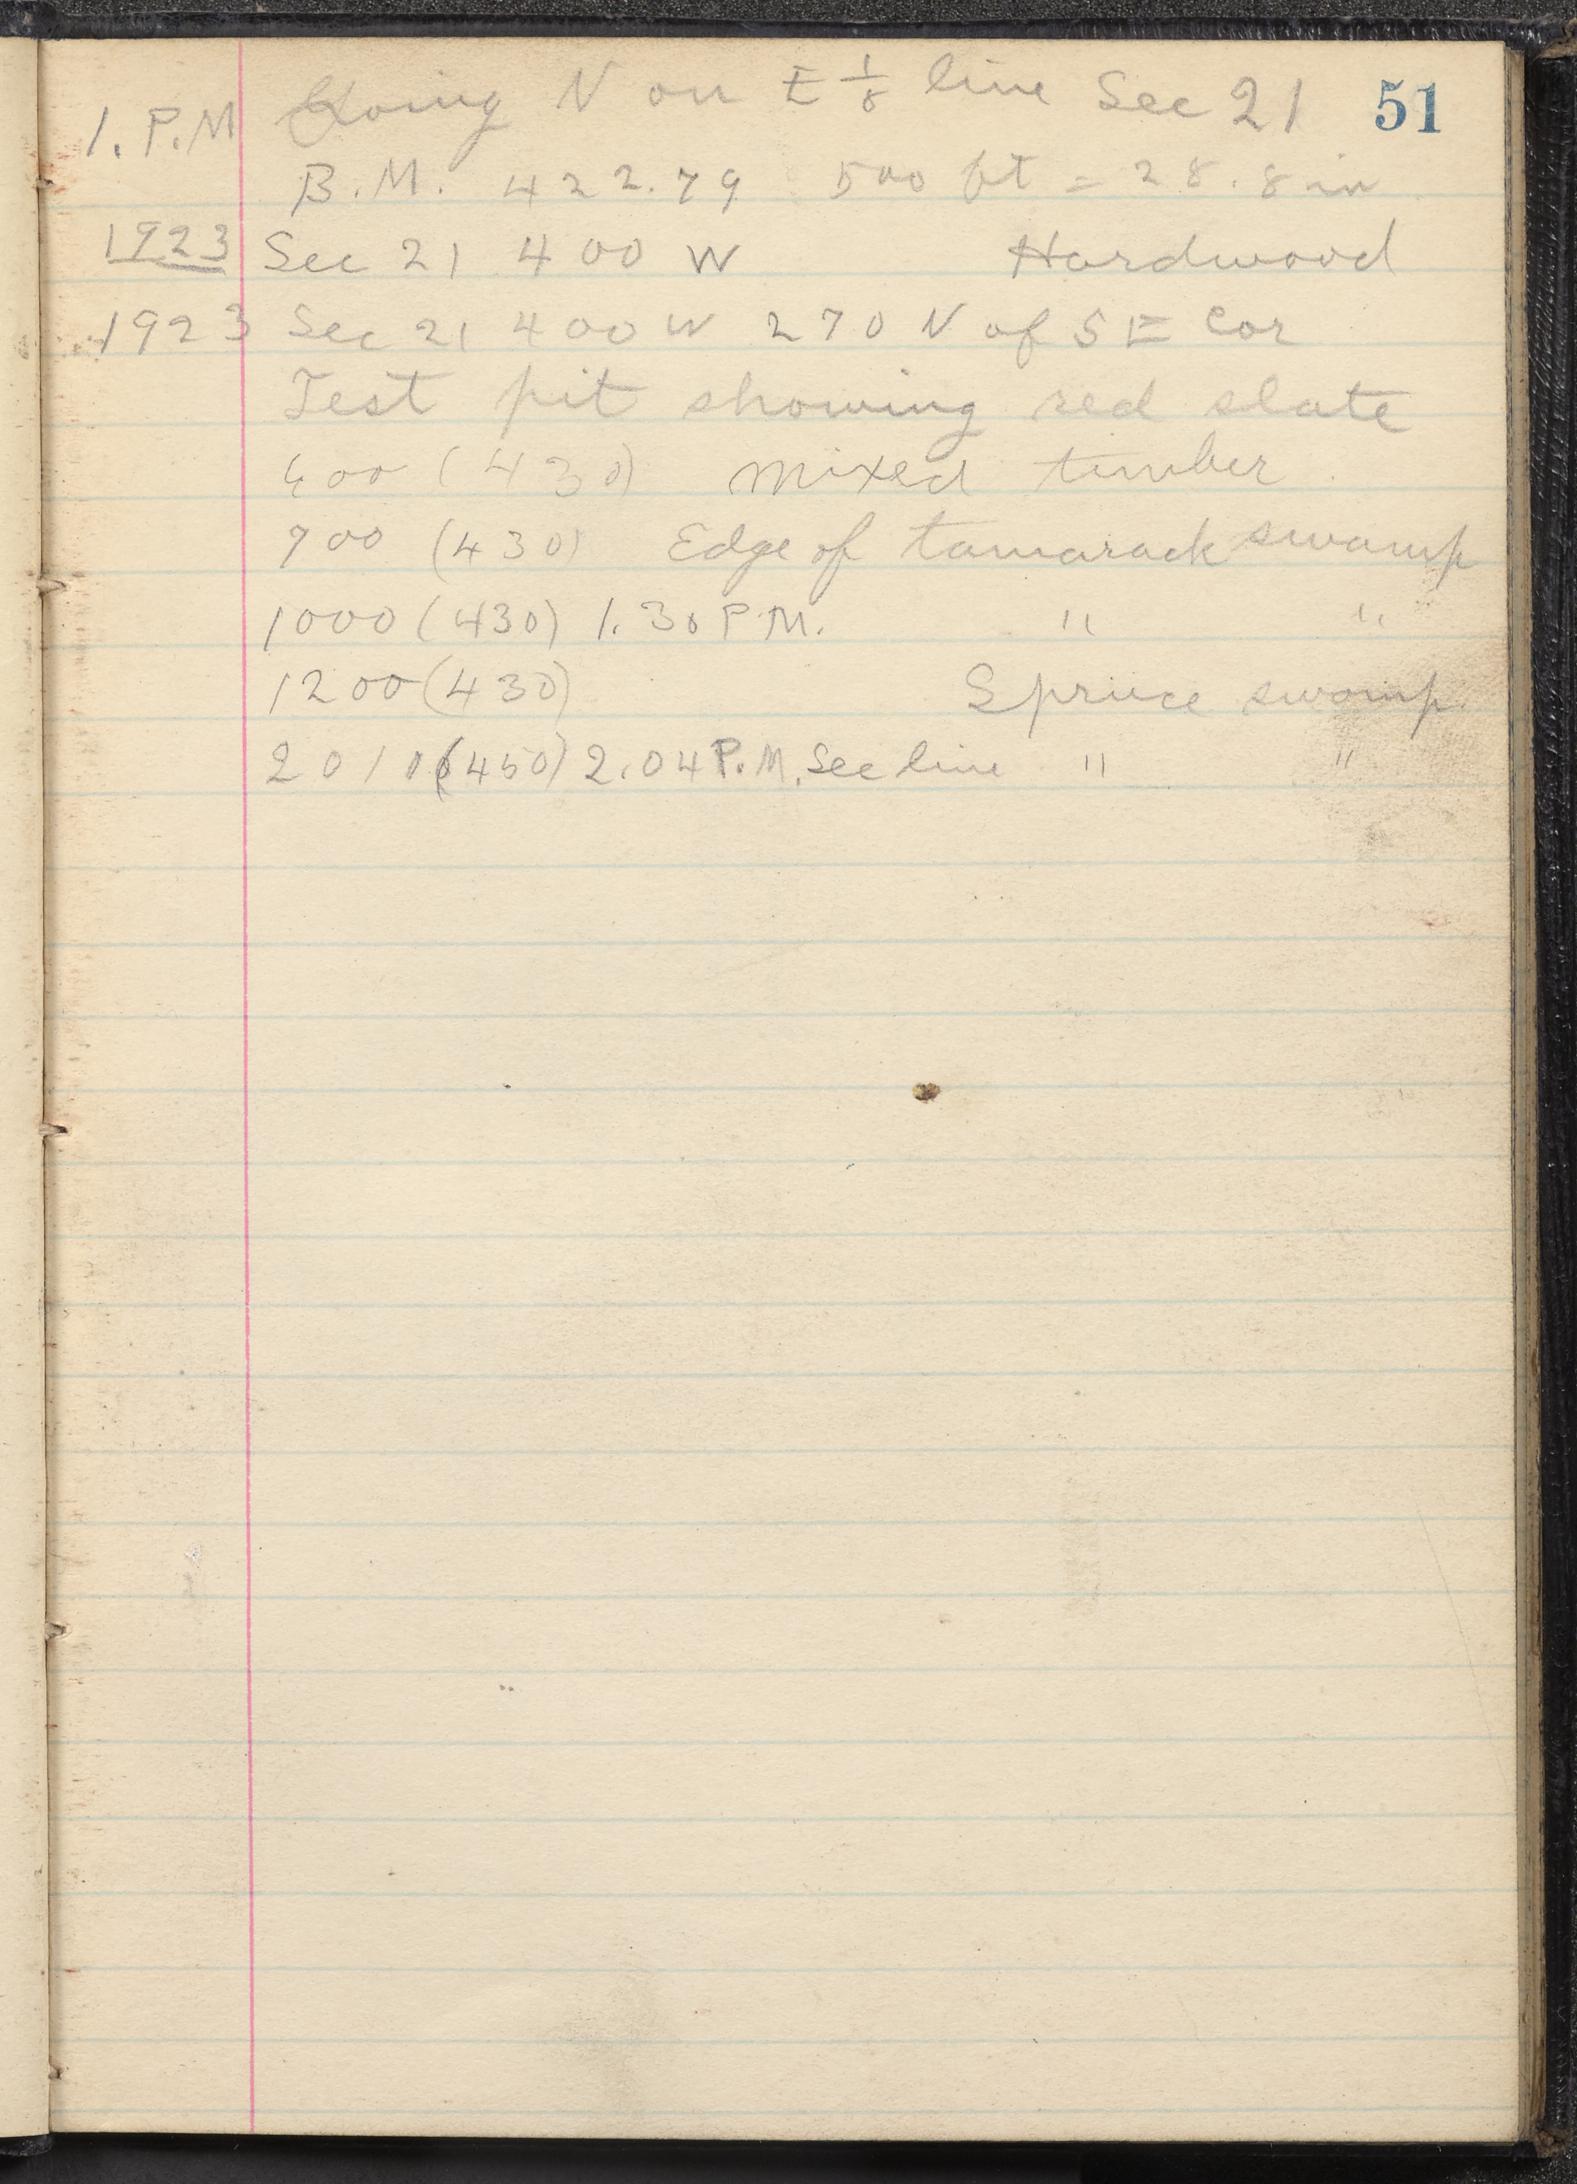 51
1. P.M Going N on E 1/8 line Sec 21
B.M. 422.79 500 ft = 28.8 in
1923 Sec 21 400 W Hardwood
1923 Sec 21 400 W 270 N of SE Cor
Test pit showing red slate
600 (430) Mixed timber
700 (430) Edge of tamarack swamp
1000 (430) 1.30 P.M. " "
1200 (430) Spruce swamp
2010 (450) 2.04 P.M. Sec line " "